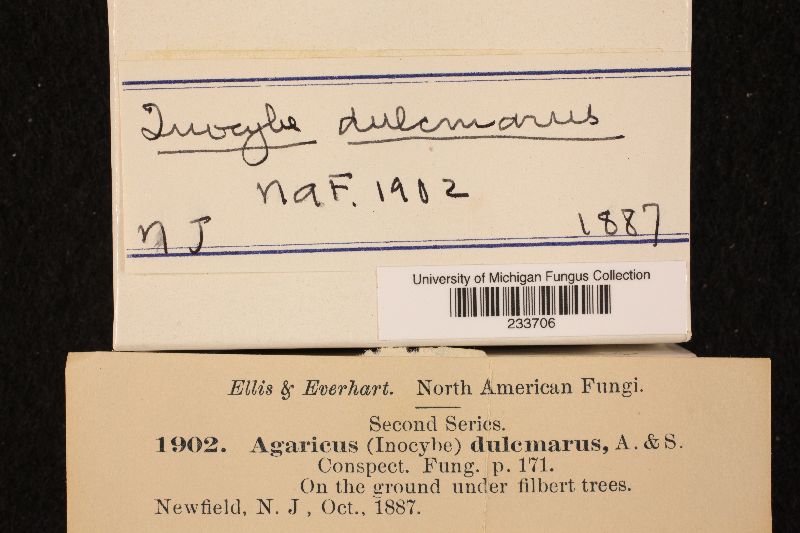 Inocybe dulcmarus
NAF. 1902
NJ 1887
University of Michigan Fungus Collection
233706
Ellis & Everhart. North American Fungi.
Second Series.
1902. Agaricus (Inocybe) dulcmarus, A. & S.
Conspect. Fung. p. 171.
On the ground under filbert trees.
Newfield, N. J , Oct., 1887.